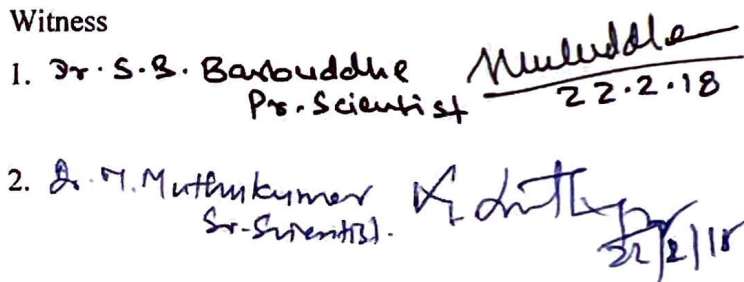 Witness
1. Dr. S.B. Barbuddhe
Pr. Scientist
22.2.18
2. Dr. M. Muthukumar
Sr. Scientist.
22/2/18